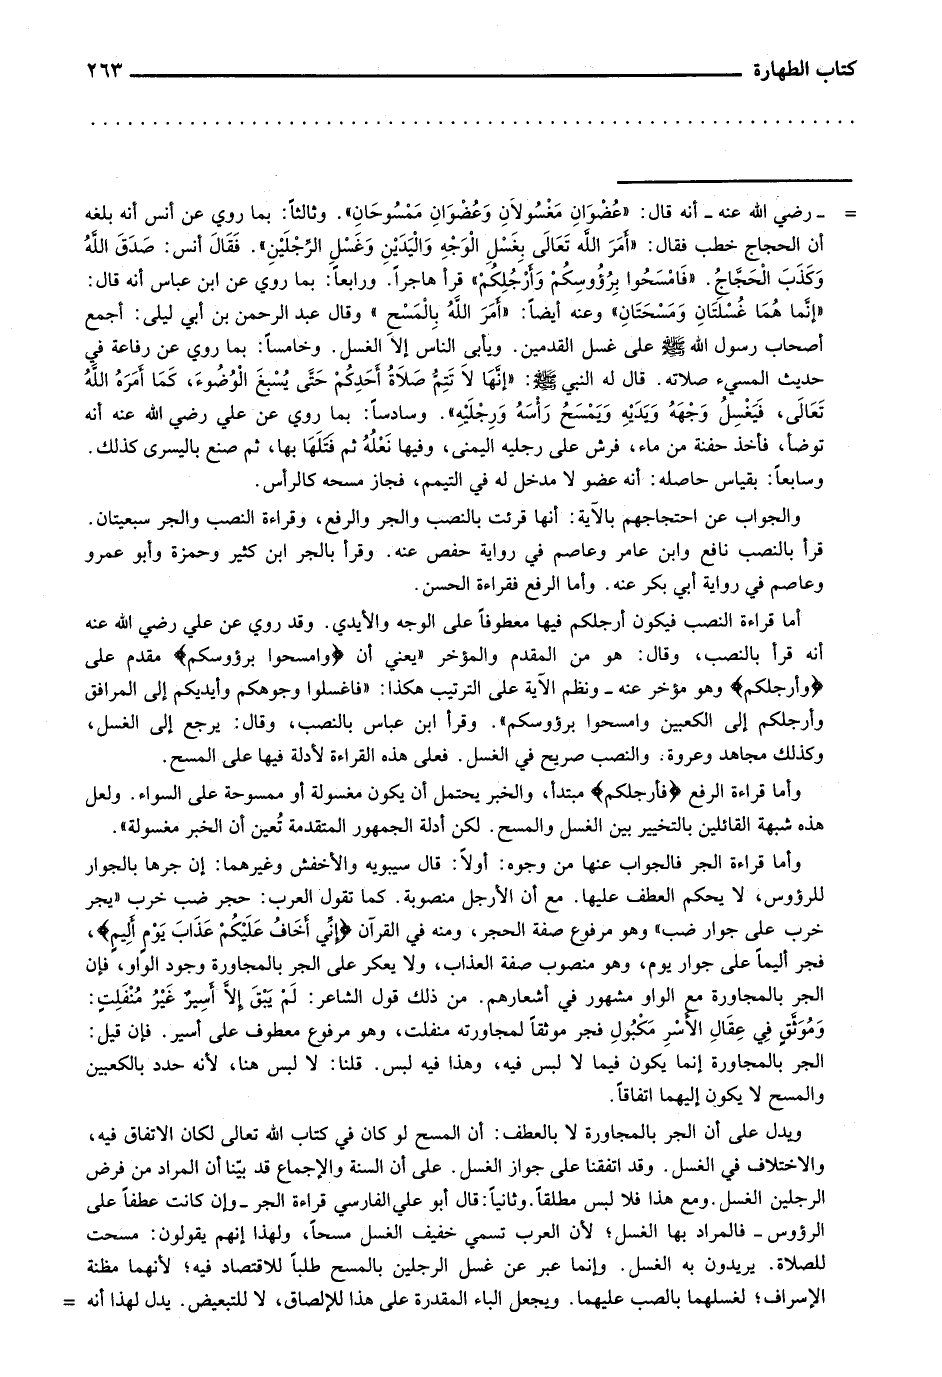 كتاب الطهارة ٢٦٣
= ـ رضي الله عنه ـ أنه قال: «عُضْوَانِ مَغْسُولَانِ وَعُضْوَانِ مَمْسُوحَانِ». وثالثاً: بما روي عن أنس أنه بلغه
أن الحجاج خطب فقال: «أَمَرَ اللَّه تَعَالَى بِغَسْلِ الْوَجْهِ وَالْيَدَيْنِ وَغَسْلِ الرِّجْلَيْنِ». فَقَالَ أنس: صَدَقَ اللَّهُ
وَكَذَبَ الْحَجَّاجُ. «فَامْسَحُوا بِرُؤُوسِكُمْ وَأَرْجُلِكُمْ» قرأ هاجراً. ورابعاً: بما روي عن ابن عباس أنه قال:
«إِنَّما هُمَا غُسْلَتَانِ وَمَسْحَتَانِ» وعنه أيضاً: «أَمَرَ اللَّهُ بِالْمَسْحِ » وقال عبد الرحمن بن أبي ليلى: أجمع
أصحاب رسول الله ﷺ على غسل القدمين. ويأبى الناس إلا الغسل. وخامساً: بما روي عن رفاعة في
حديث المسيء صلاته. قال له النبي ﷺ: «إِنَّهَا لاَ تَتِمُّ صَلاَةُ أَحَدِكُمْ حَتَّى يُسْبِغَ الْوُضُوءَ، كَمَا أَمَرَهُ اللَّهُ
تَعَالَى، فَيَغْسِلُ وَجْهَهُ وَيَدَيْهِ وَيَمْسَحُ رَأْسَهُ وَرِجْلَيْهِ». وسادساً: بما روي عن علي رضي الله عنه أنه
توضأ، فأخذ حفنة من ماء، فرش على رجليه اليمنى، وفيها نَعْلُهُ ثم فَتَلَهَا بها، ثم صنع باليسرى كذلك.
وسابعاً: بقياس حاصله: أنه عضو لا مدخل له في التيمم، فجاز مسحه كالرأس.
والجواب عن احتجاجهم بالآية: أنها قرئت بالنصب والجر والرفع، وقراءة النصب والجر سبعيتان.
قرأ بالنصب نافع وابن عامر وعاصم في رواية حفص عنه. وقرأ بالجر ابن كثير وحمزة وأبو عمرو
وعاصم في رواية أبي بكر عنه. وأما الرفع فقراءة الحسن.
أما قراءة النصب فيكون أرجلكم فيها معطوفاً على الوجه والأيدي. وقد روي عن علي رضي الله عنه
أنه قرأ بالنصب، وقال: هو من المقدم والمؤخر «يعني أن ﴿وامسحوا برؤوسكم﴾ مقدم على
﴿وأرجلكم﴾ وهو مؤخر عنه ـ ونظم الآية على الترتيب هكذا: «فاغسلوا وجوهكم وأيديكم إلى المرافق
وأرجلكم إلى الكعبين وامسحوا برؤوسكم». وقرأ ابن عباس بالنصب، وقال: يرجع إلى الغسل،
وكذلك مجاهد وعروة. والنصب صريح في الغسل. فعلى هذه القراءة لأدلة فيها على المسح.
وأما قراءة الرفع ﴿فأرجلكم﴾ مبتدأ، والخبر يحتمل أن يكون مغسولة أو ممسوحة على السواء. ولعل
هذه شبهة القائلين بالتخيير بين الغسل والمسح. لكن أدلة الجمهور المتقدمة تُعين أن الخبر مغسولة».
وأما قراءة الجر فالجواب عنها من وجوه: أولاً: قال سيبويه والأخفش وغيرهما: إن جرها بالجوار
للرؤوس، لا يحكم العطف عليها. مع أن الأرجل منصوبة. كما تقول العرب: حجر ضب خرب «يجر
خرب على جوار ضب» وهو مرفوع صفة الحجر، ومنه في القرآن ﴿إِنِّي أَخَافُ عَلَيْكُمْ عَذَابَ يَوْمٍ أَلِيمٍ﴾،
فجر أليماً على جوار يوم، وهو منصوب صفة العذاب، ولا يعكر على الجر بالمجاورة وجود الواو، فإن
الجر بالمجاورة مع الواو مشهور في أشعارهم. من ذلك قول الشاعر: لَمْ يَبْقَ إِلاَّ أَسِيرٌ غَيْرُ مُنْفَلِتٍ:
وَمُوَثَّقٍ فِي عِقَالِ الأَسْرِ مَكْبُولِ فجر موثقاً لمجاورته منفلت، وهو مرفوع معطوف على أسير. فإن قيل:
الجر بالمجاورة إنما يكون فيما لا لبس فيه، وهذا فيه لبس. قلنا: لا لبس هنا، لأنه حدد بالكعبين
والمسح لا يكون إليهما اتفاقاً.
ويدل على أن الجر بالمجاورة لا بالعطف: أن المسح لو كان في كتاب الله تعالى لكان الاتفاق فيه،
والاختلاف في الغسل. وقد اتفقنا على جواز الغسل. على أن السنة والإجماع قد بيّنا أن المراد من فرض
الرجلين الغسل. ومع هذا فلا لبس مطلقاً. وثانياً: قال أبو علي الفارسي قراءة الجر ـ وإن كانت عطفاً على
الرؤوس ـ فالمراد بها الغسل؛ لأن العرب تسمي خفيف الغسل مسحاً، ولهذا إنهم يقولون: مسحت
للصلاة. يريدون به الغسل. وإنما عبر عن غسل الرجلين بالمسح طلباً للاقتصاد فيه؛ لأنهما مظنة
الإسراف؛ لغسلهما بالصب عليهما. ويجعل الباء المقدرة على هذا للإلصاق، لا للتبعيض. يدل لهذا أنه =